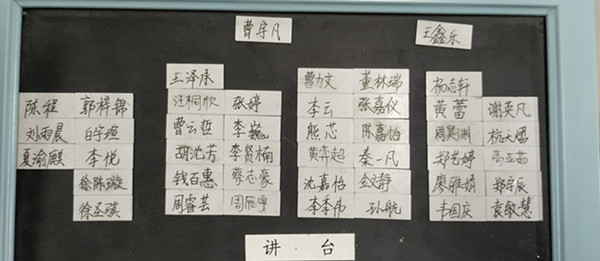 曹宇凡 王鑫乐
王泽承 曹力文 董林瑞 杨志轩
陈程 郭梓锦 汪桐欣 张婷 李云 张嘉仪 黄蕾 谢英凡
刘雨晨 白宇煊 曹云哲 李巍 熊芯 陈嘉怡 周昊渊
夏瑜殿 李悦 胡沈芳 李贤楠 黄弈超 秦一凡 郑艺婷 高亚茹
徐陈璇 钱百惠 蔡志豪 沈嘉怡 金文静 廖雅婧 郑宇辰
徐圣骐 周睿芸 周辰宇 李季伟 孙航 韦国庆 袁敏慧
讲 台